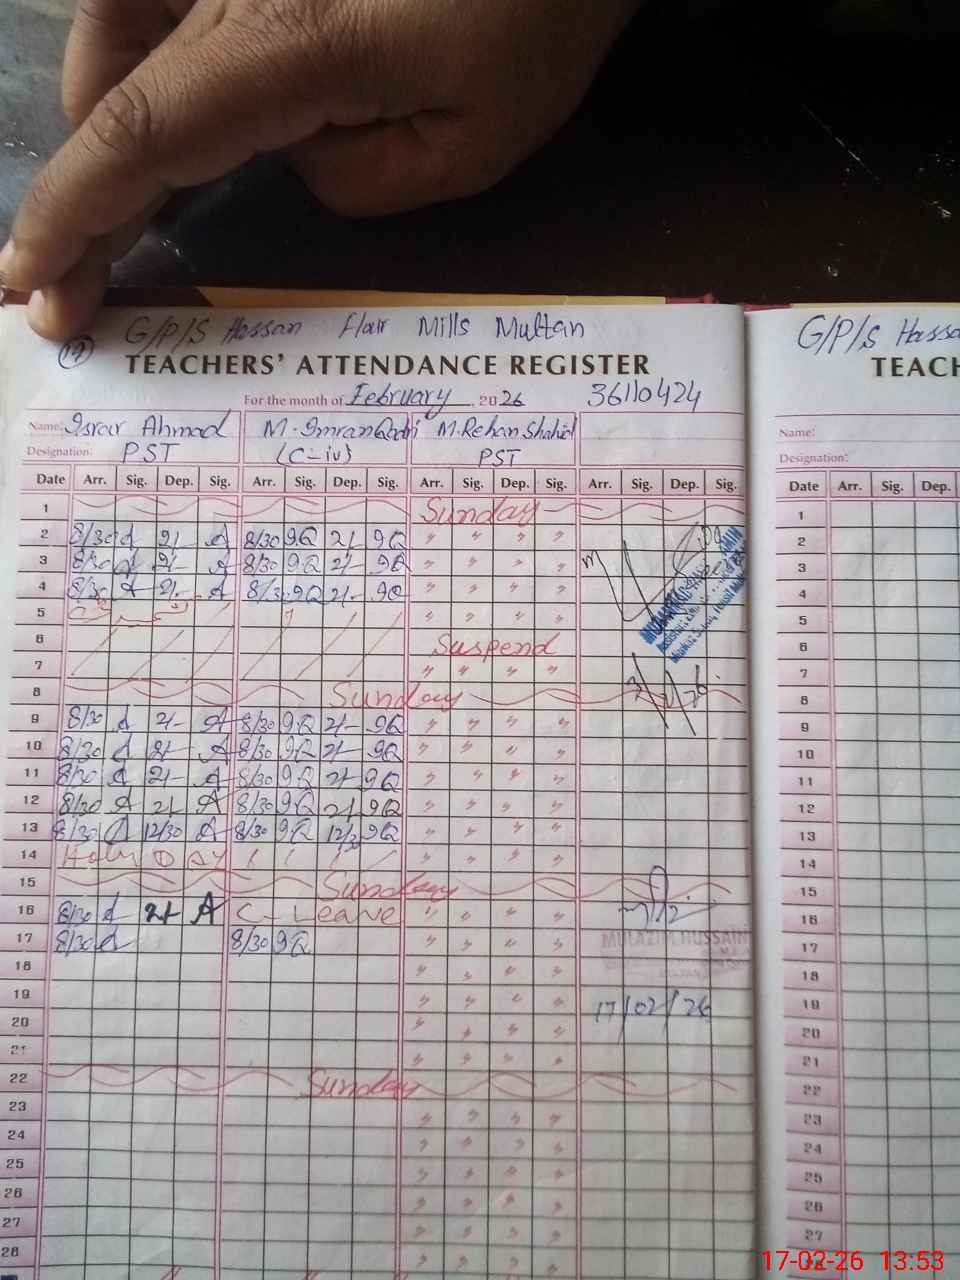 G/P/S Hassan Flour Mills Multan
G/P/S Hassa
19
TEACHERS' ATTENDANCE REGISTER
TEACH
For the month of February, 2026 36110424
Name: Israr Ahmad M. Imran Qadri M. Rehan Shahid
Name:
Designation: PST (C-iv) PST
Designation:
Date Arr. Sig. Dep. Sig. Arr. Sig. Dep. Sig. Arr. Sig. Dep. Sig. Arr. Sig. Dep. Sig.
Date Arr. Sig. Dep.
1 Sunday
2 8/30 A 2/- A 8/30 9Q 2/- 9Q " " " "
3 8/30 A 2/- A 8/30 9Q 2/- 9Q " " " "
4 8/30 A 2/- A 8/30 9Q 2/- 9Q " " " "
5 " " " "
6 Suspend
7 " " " "
8 Sunday
9 8/30 A 2/- A 8/30 9Q 2/- 9Q " " " "
10 8/30 A 2/- A 8/30 9Q 2/- 9Q " " " "
11 8/30 A 2/- A 8/30 9Q 2/- 9Q " " " "
12 8/30 A 2/- A 8/30 9Q 2/- 9Q " " " "
13 8/30 A 12/30 A 8/30 9Q 12/30 9Q " " " "
14 " " " "
15 Sunday
16 8/30 A 2/- A C-Leave " " " "
17 8/30 A 8/30 9Q " " " "
MULAZIM HUSSAIN
18 " " " "
19 " " " " 17/02/26
20 " " " "
21 " " " "
22 Sunday
23 " " " "
24 " " " "
25 " " " "
26 " " " "
27 " " " "
28 " " " "
1
2
3
4
5
6
7
8
9
10
11
12
13
14
15
16
17
18
19
20
21
22
23
24
25
26
27
17-02-26 13:53